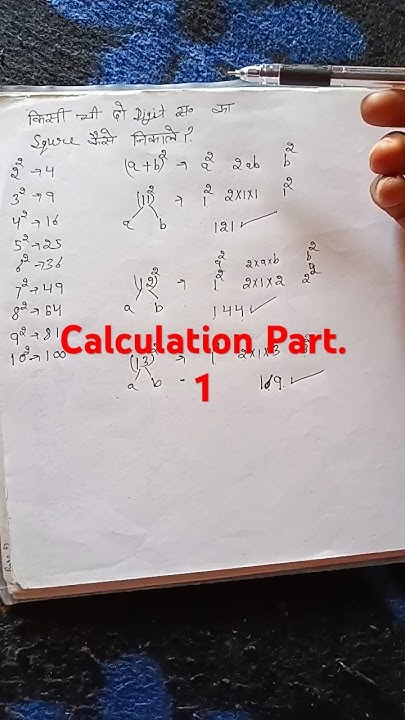 किसी भी दो Digit सं० का
Squre कैसे निकाले?
2² → 4
3² → 9
4² → 16
5² → 25
6² → 36
7² → 49
8² → 64
9² → 81
10² → 100
(a+b)² → a² 2ab b²
(11)² → 1² 2×1×1 1²
a b 121 ✓
a² 2×a×b b²
(12)² → 1² 2×1×2 2²
a b 144 ✓
(13)² → 1² 2×1×3 3²
a b 169 ✓
Calculation Part.
1